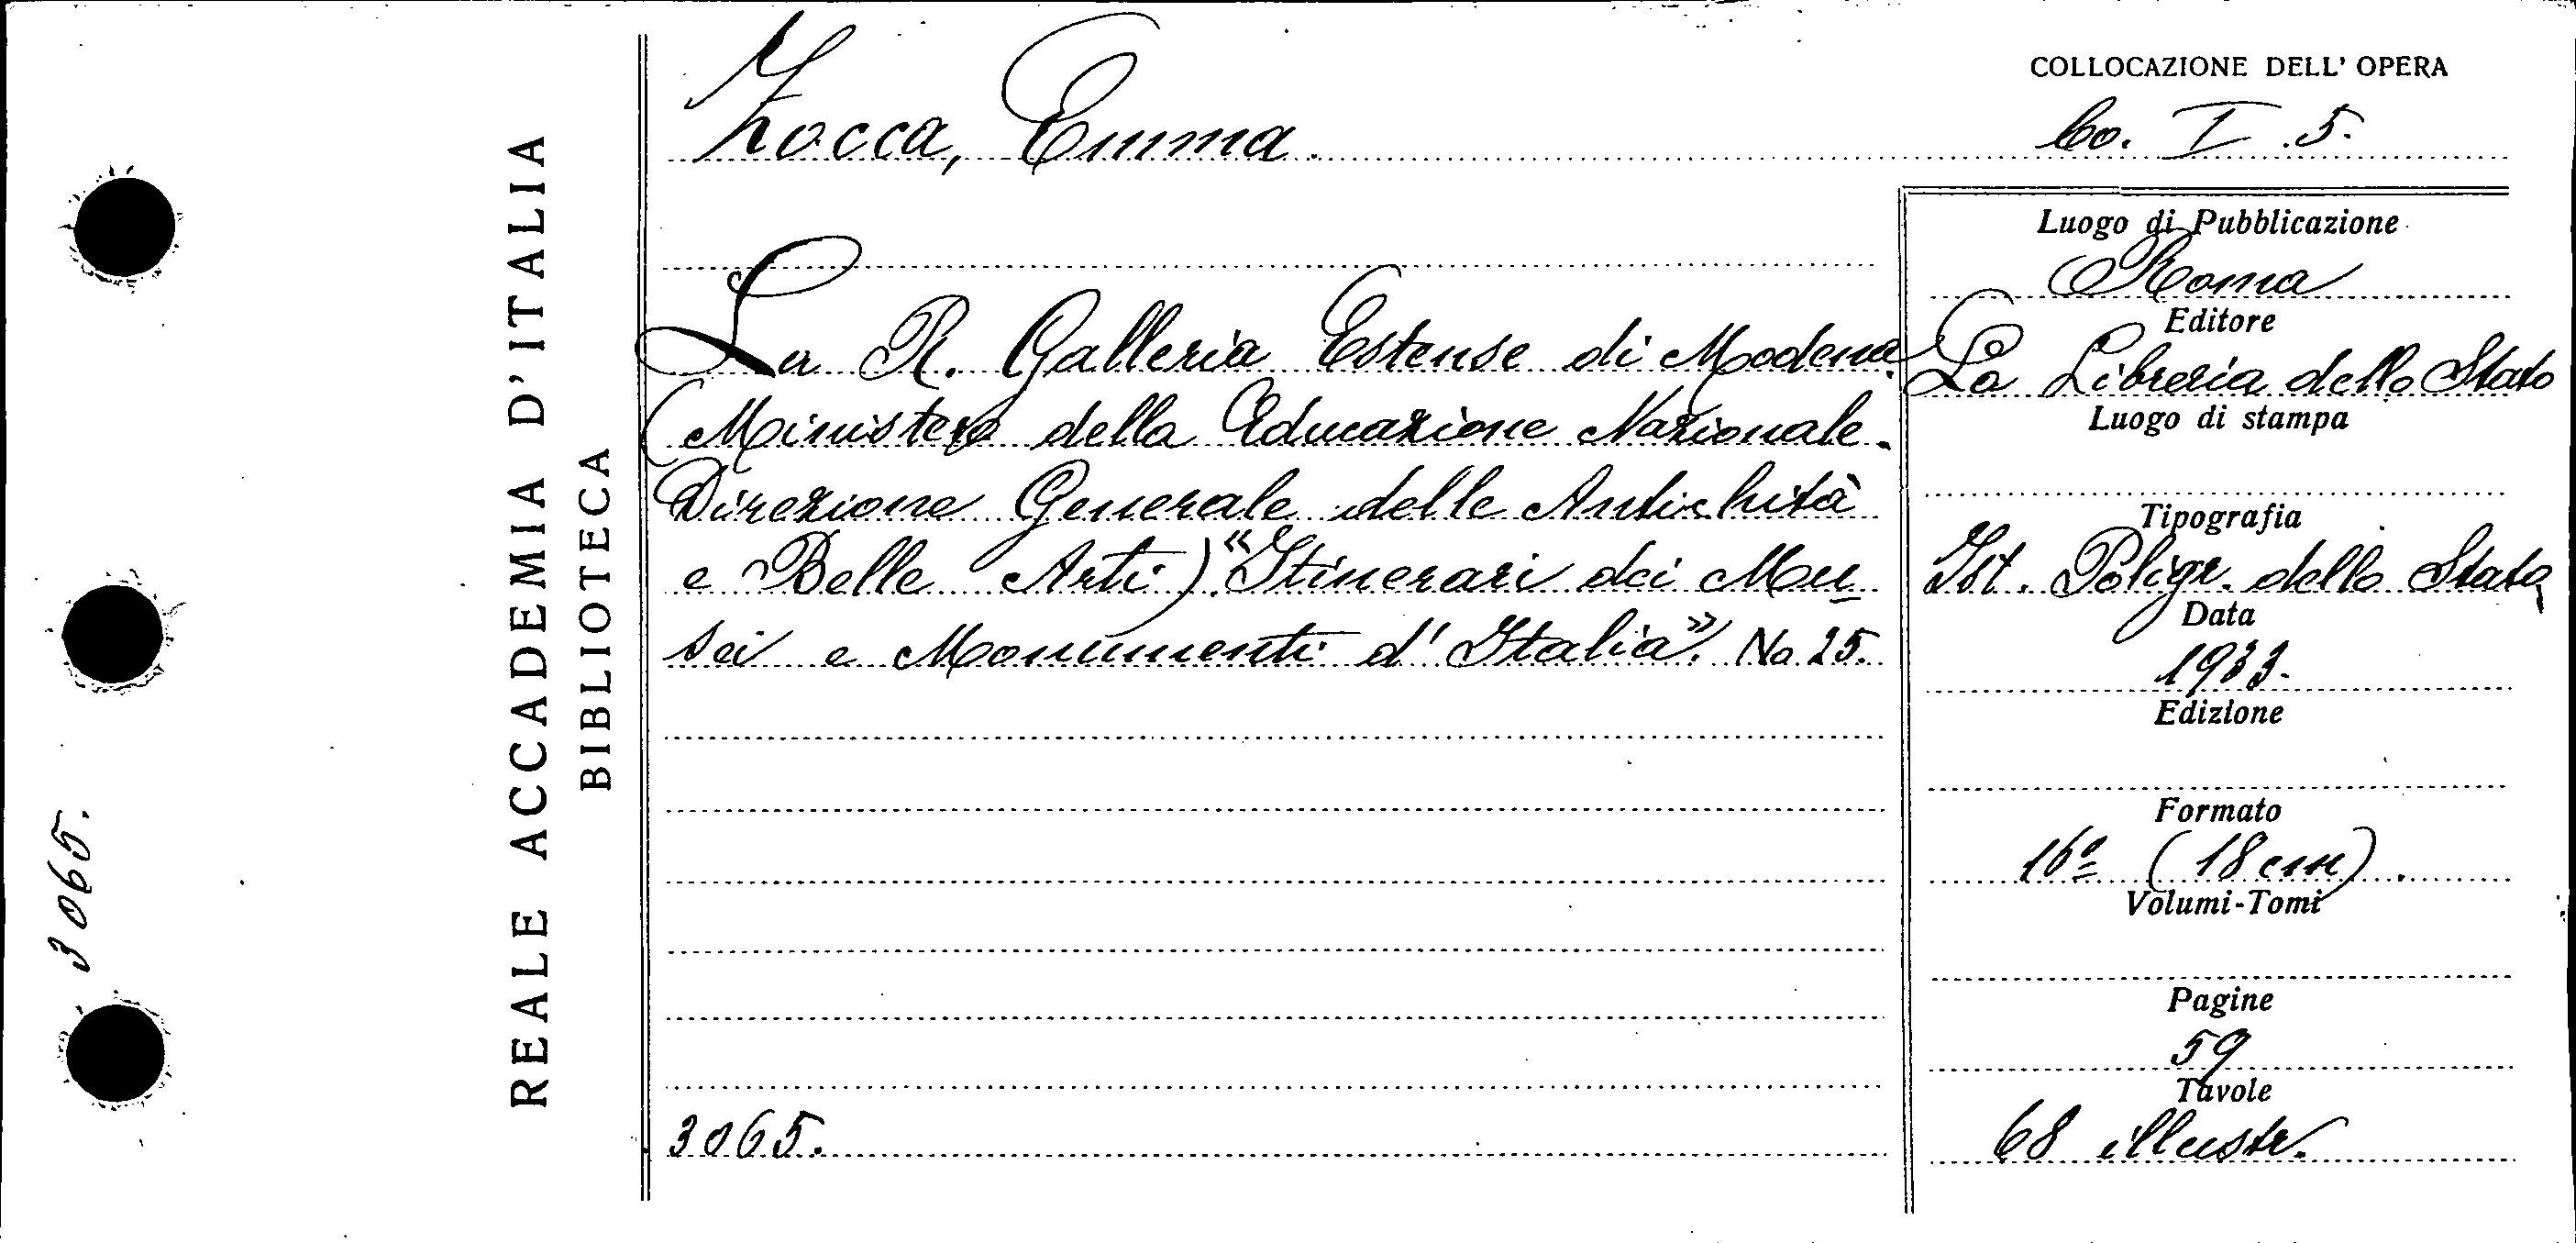 3065.
REALE ACCADEMIA D'ITALIA
BIBLIOTECA
Zocca, Emma.
La R. Galleria Estense di Modena.
(Ministero della Educazione Nazionale.
Direzione Generale delle Antichità
e Belle Arti). «Itinerari dei Mu
sei e Monumenti d'Italia». No 25.
3065.
COLLOCAZIONE DELL' OPERA
Co. I. 5.
Luogo di Pubblicazione
Roma
Editore
La Libreria dello Stato
Luogo di stampa
Tipografia
Ist. Poligr. dello Stato
Data
1933.
Edizione
Formato
16º (18 cm).
Volumi-Tomi
Pagine
59
Tavole
68 illustr.